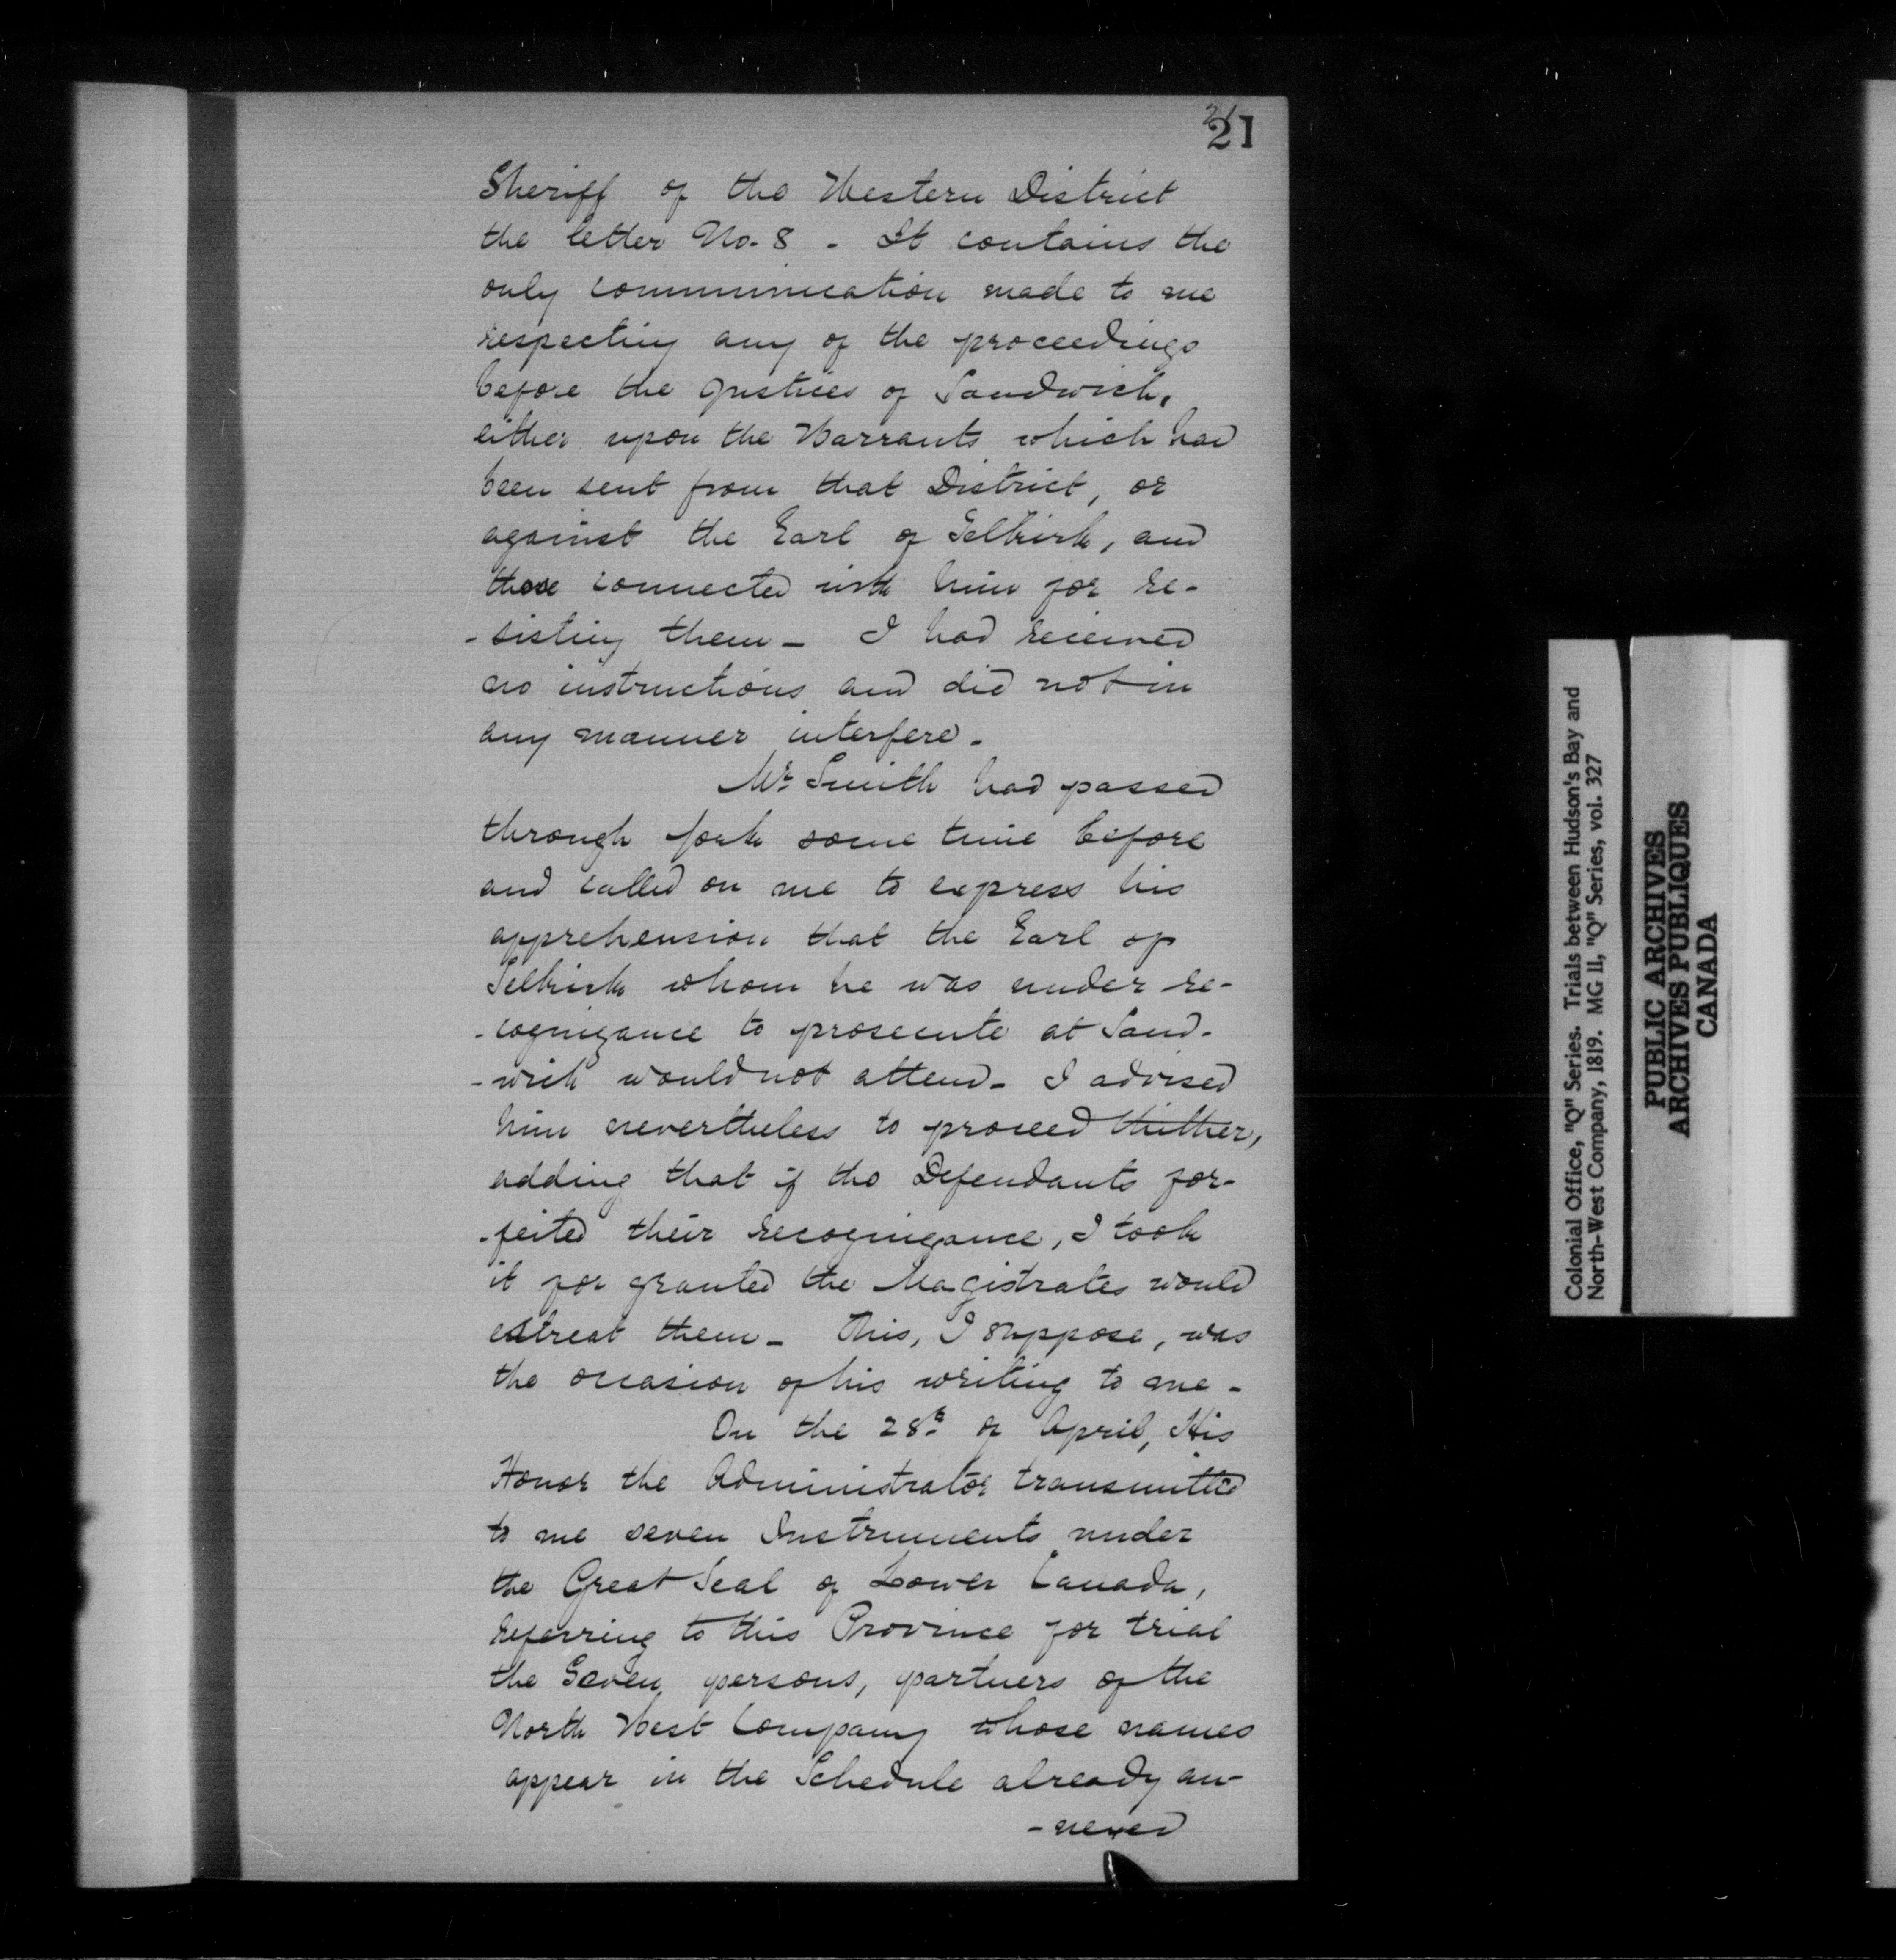 21
21
Sheriff of the Western District
the letter No. 8 - It contains the
only communication made to me
respecting any of the proceedings
before the Justices of Sandwich,
either upon the Warrants which had
been sent from that District, or
against the Earl of Selkirk, and
those connected with him for re-
-sisting them - I had received
no instructions and did not in
any manner interfere -
Mr Smith had passed
through York some time before
and called on me to express his
apprehension that the Earl of
Selkirk whom he was under re-
-cognizance to prosecute at Sand-
-wich would not attend - I advised
him nevertheless to proceed thither,
adding that if the Defendants for-
-feited their recognizance, I took
it for granted the Magistrates would
estreat them - This, I suppose, was
the occasion of his writing to me -
On the 28th of April, His
Honor the Administrator transmitted
to me seven Instruments under
the Great Seal of Lower Canada,
referring to this Province for trial
the Seven persons, partners of the
North West Company whose names
appear in the Schedule already an-
-nexed
Colonial Office, "Q" Series. Trials between Hudson's Bay and
North-West Company, 1819. MG 11, "Q" Series, vol. 327
PUBLIC ARCHIVES
ARCHIVES PUBLIQUES
CANADA